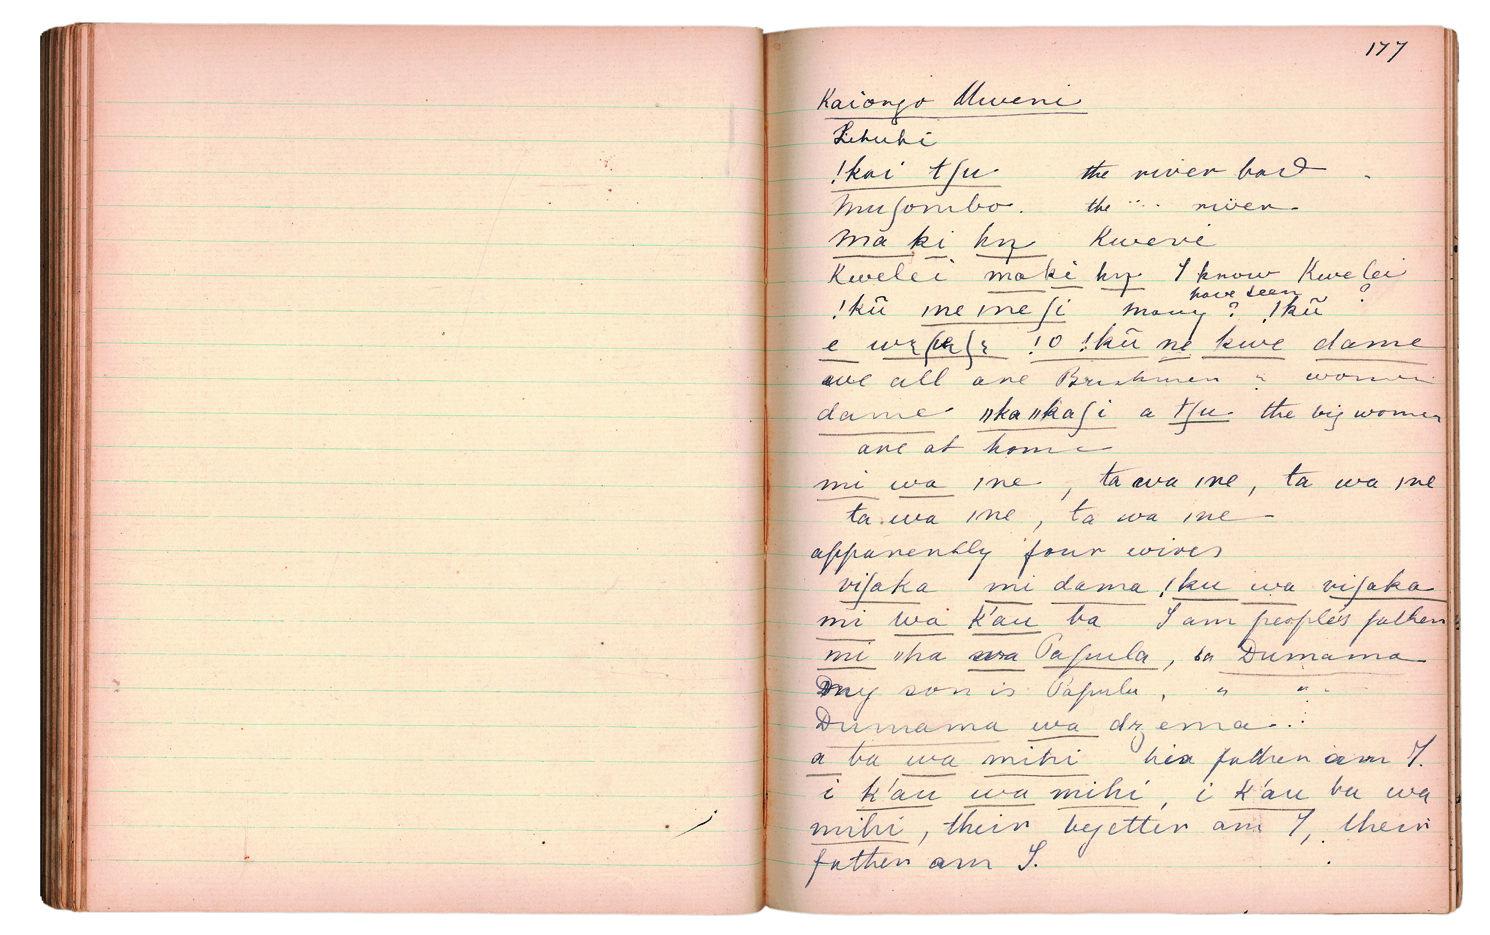 177
Kaiongo Mweni
!kai tʃu the river bad
Muʃombo. the " river
ma ki hŋ Kwerei
Kwelei ma ki hŋ I know Kwelei
have seen ?
!kũ ıne ıne ʃi many ? !kũ
e !o !kũ ne kwe dame
we all are Bushmen " women
dame ıı ka ıı kaʃi a tʃu the big women
are at home
mi wa ıne, ta wa ıne, ta wa ıne
ta wa ıne, ta wa ıne
apparently four wives
viʃaka mi dama !ku wa viʃaka
mi wa k'au ba I am people's father
mi ıı ha wa Paʃula, ta Dumama
my son is Papula, " "
Dumama wa dzema
a ba wa mihi his father am I.
i k'au wa mihi, i k'au ba wa
mihi, their begetter am I, their
father am I.